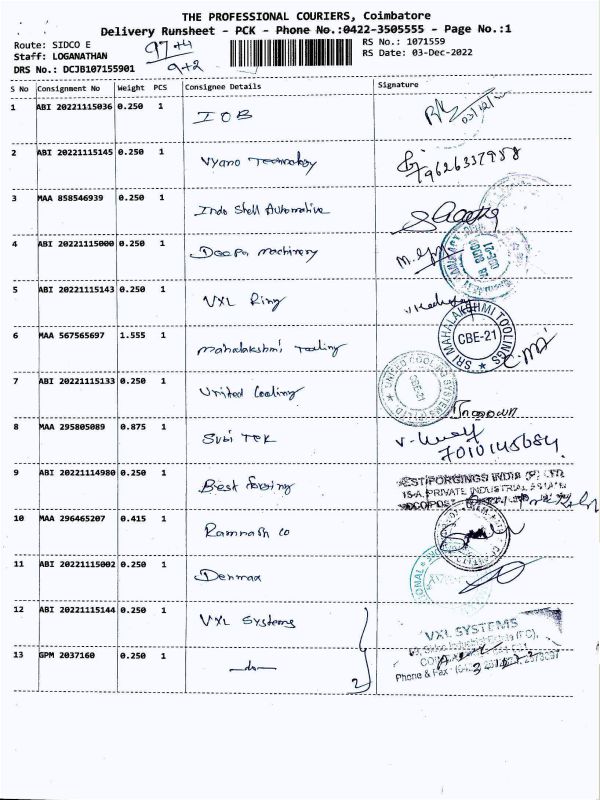 THE PROFESSIONAL COURIERS, Coimbatore
Delivery Runsheet - PCK - Phone No.:0422-3505555 - Page No.:1
Route: SIDCO E
RS No.: 1071559
Staff: LOGANATHAN
RS Date: 03-Dec-2022
DRS No.: DCJB107155901
97+4
9+2
S No Consignment No Weight PCS Consignee Details Signature
1 ABI 20221115036 0.250 1 IOB
2 ABI 20221115145 0.250 1 Vyano Technology 9626337958
3 MAA 858546939 0.250 1 Indo Shell Automotive
4 ABI 20221115000 0.250 1 Deepa machinery
5 ABI 20221115143 0.250 1 VXL Ring
6 MAA 567565697 1.555 1 mahalakshmi Tooling SRI MAHALAKSHMI TOOLINGS CBE-21
7 ABI 20221115133 0.250 1 United Cooling UNITED COOLING SYSTEMS (P) LTD CBE-21
8 MAA 295805089 0.875 1 Subi TEK 7010145684
9 ABI 20221114980 0.250 1 Best forging BEST FORGINGS INDIA (P) LTD
15-A, PRIVATE INDUSTRIAL ESTATE
10 MAA 296465207 0.415 1 Ramnash co
11 ABI 20221115002 0.250 1 Denmax
12 ABI 20221115144 0.250 1 VXL Systems VXL SYSTEMS
13 GPM 2037160 0.250 1 —do— 2
Phone & Fax